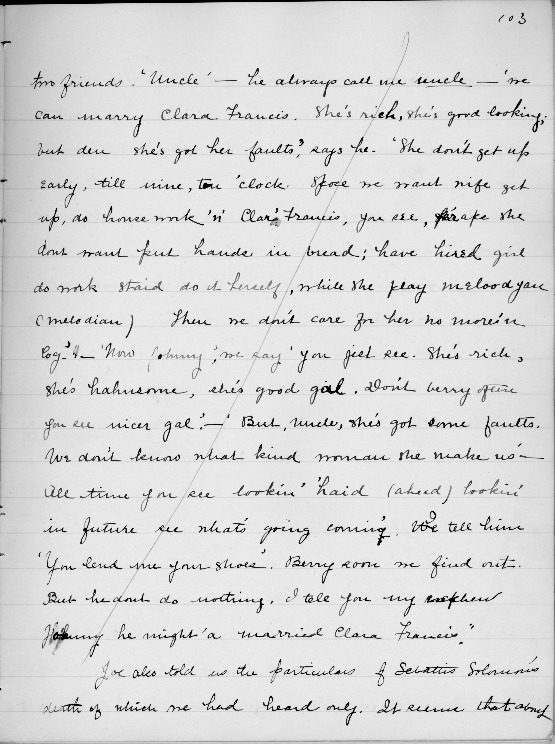 103
two friends. 'Uncle' — he always call me uncle — 'we
can marry Clara Francis. She's rich, she's good looking;
but den she's got her faults', says he. 'She don't get up
early, till nine, ten 'clock. Spose we want wife get
up, do house work 'n' Clara Francis, you see, she
dont want put hands in bread; have hired girl
do work staid do it herself, while she play melodyan
(melodian) Then we don't care for her no more'n
log.' — 'Now Johnny', we say 'you jest see. She's rich,
she's hahnsome, she's good gal. Don't berry often
you see nicer gal.' — 'But, Uncle, she's got some faults.
We don't know what kind woman she make us' —
All time you see lookin' 'haid (ahead) lookin'
in future see what's going coming. We tell him
'You lend me your shoes'. Berry soon we find out.
But he dont do nothing. I tell you my nephew
Johnny he might 'a married Clara Francis."
Joe also told us the particulars of Sebattis Solomon's
death of which we had heard only. It seems that about